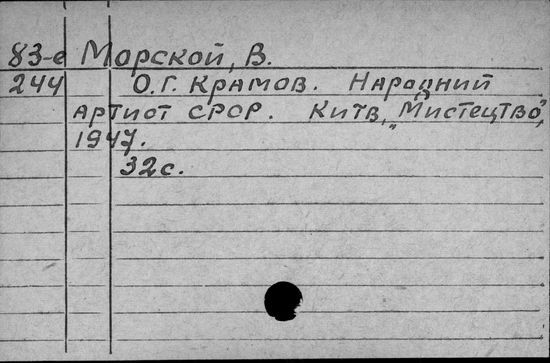 83-е Морской, В.
244 О.Г. Крамов. Народний
артист СРСР. Київ, „Мистецтво",
1947.
32с.